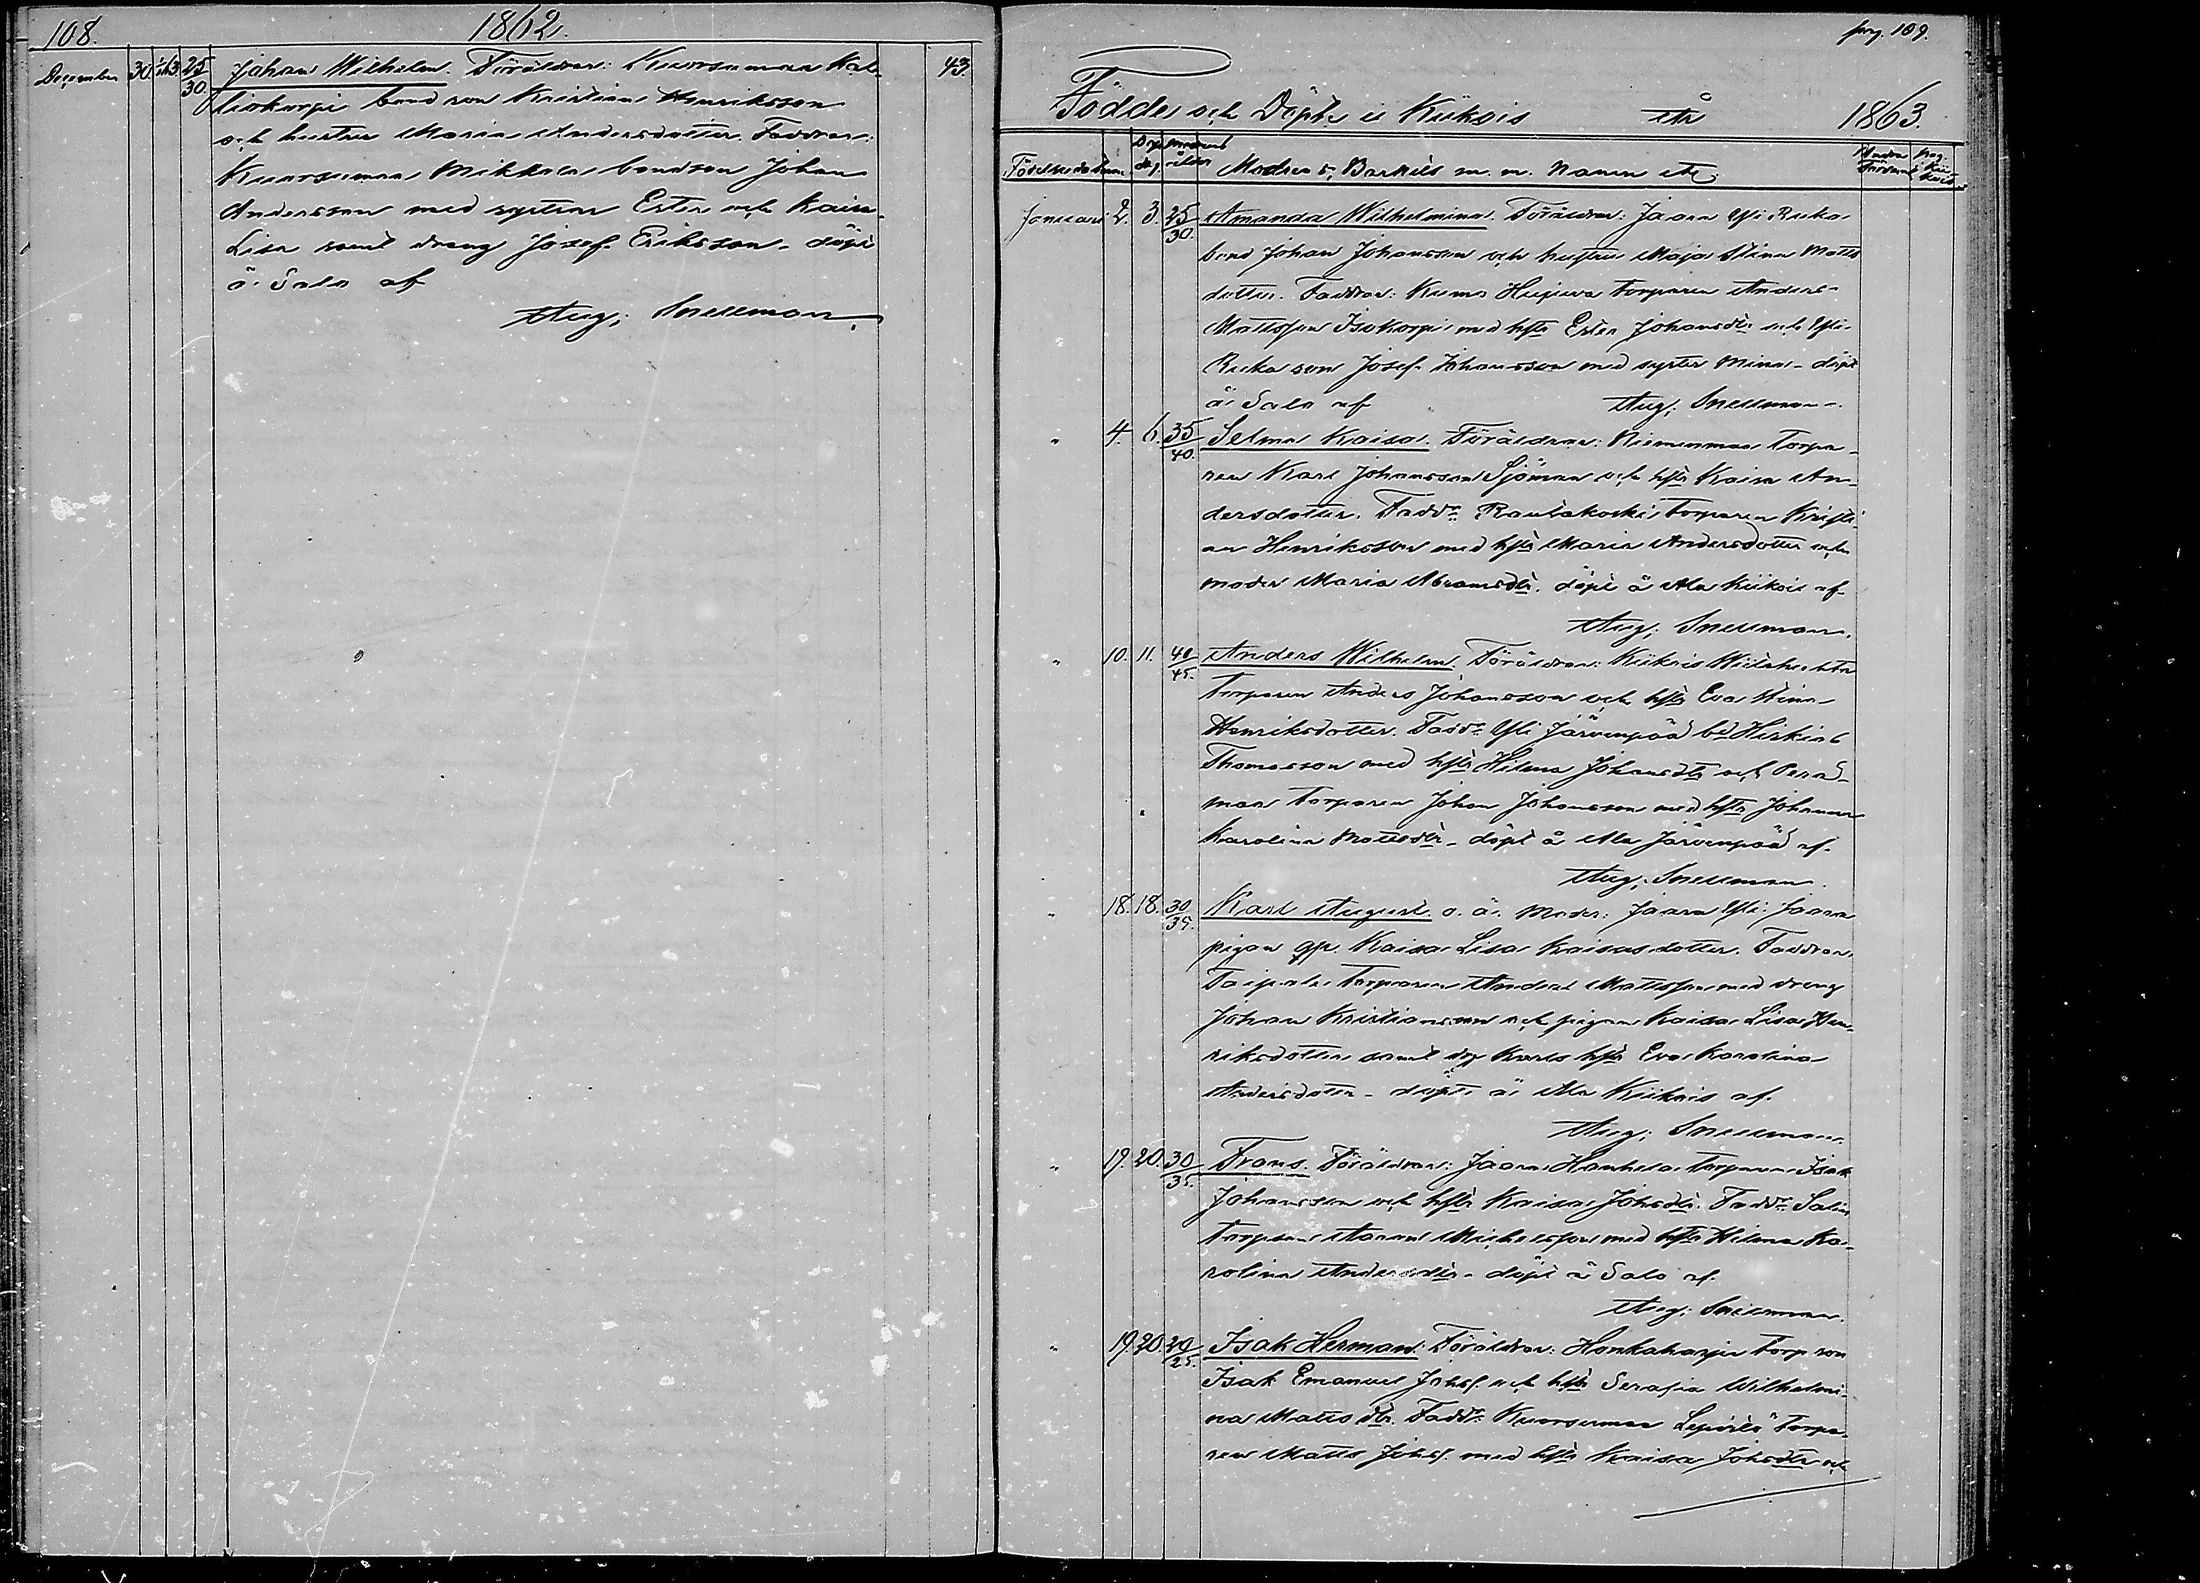 108. 1862.
December 30. 25/30. Johan Wilhelm. Föräldrar: Kuorsumaa Kal- 43.
liokorpi bond son Kristian Henriksson
och hustru Maria Andersdotter. Faddrar:
Kuorsumaa Mikkola bondson Johan
Andersson med systrar Ester och Kaisa
Lisa samt dreng Josef Eriksson - döpt
å Salo af
Aug: Snellman.
pag. 109.
Födde och Döpte i Kiikois År 1863.
Födelsedatum Döp. dag. Modrens ålder Modren o. Barnets m. m. Namn etc.
Januari 2. 3. 25/30. Amanda Wilhelmina. Föräldrar: Jaara Yli Ruka
bond Johan Johansson och hustru Maja Stina Matts
dotter. Faddrar: torparen Anders
Mattsson Isokorpi med hstr Ester Johansdtr och Yli
Ruka son Josef Johansson med syster Mina - döpt
å Salo af Aug: Snellman.
" 4. 6. 35/40. Selma Kaisa. Föräldrar: Niemenmaa torpa-
ren Karl Johansson Sjöman och hstr Kaisa An-
dersdotter. Faddr: Rautakoski torparen Kristi
an Henriksson med hstr Maria Andersdotter och
moder Maria Abramsdtr. döpt å Ala Kiikois af
Aug: Snellman.
" 10. 11. 40/45. Anders Wilhelm. Föräldrar: Kiikois
torparen Anders Johansson och hstr Eva Stina
Henriksdotter. Faddr: Yli Järvenpää bd
Thomasson med hstr Hilma Johansdtr och
maa torparen Johan Johansson med hstr Johanna
Karolina Mattsdtr - döpt å Ala Järvenpää af
Aug: Snellman.
" 18. 18. 30/35. Karl August. o. ä. Moder: Jaara Yli Jaara
pigan Kaisa Lisa Kaisasdotter. Faddrar:
Taipale torparen Anders Mattsson med dreng
Johan Kristiansson och pigan Kaisa Lisa Hen-
riksdotter samt hstr Eva Karolina
Andersdotter - döpt å Ala Kiikois af
Aug: Snellman.
" 19. 20. 30/35. Frans. Föräldrar: Jaara Hanhela torparen Isak
Johansson och hstr Kaisa Johsdtr. Faddr:
torparen med hstr Hilma Ka-
rolina Andersdtr - döpt å Salo af
Aug: Snellman.
" 19. 20. 20/25. Isak Herman. Föräldrar: Honkaharju torp son
Isak Emanuel Johss. och hstr Serafia Wilhelmi-
na Matts dtr. Faddr: Kuorsumaa torpa-
ren Matts Johss. med hstr Kaisa Johsdtr och